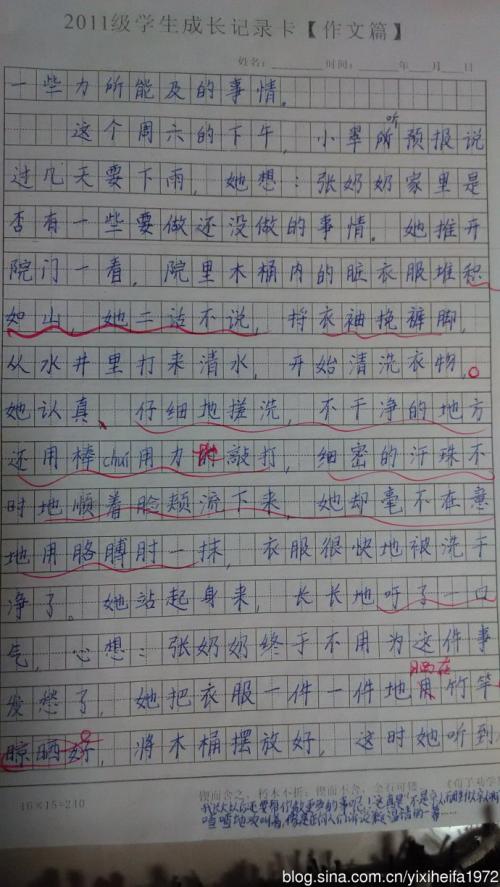 2011级学生成长记录卡【作文篇】
姓名: 时间: 年 月 日
一些力所能及的事情。
这个周六的下午，小翠所预报说
听
过几天要下雨，她想：张奶奶家里是
否有一些要做还没做的事情。她推开
院门一看，院里木桶内的脏衣服堆积
如山，她二话不说，捋衣袖挽裤脚，
从水井里打来清水，开始清洗衣物。
她认真、仔细地搓洗，不干净的地方
还用棒chui用力的敲打，细密的汗珠不
时地顺着脸颊流下来，她却毫不在意
地用胳膊肘一抹，衣服很快地被洗干
净了。她站起身来，长长地呼了一口
气，心想：张奶奶终于不用为这件事
发愁了，她把衣服一件一件地用竹竿
晒在
晾晒好，将木桶摆放好，这时她听到
锲而舍之，朽木不折；锲而不舍，金石可镂
16×15=240
blog.sina.com.cn/yixiheifa1972